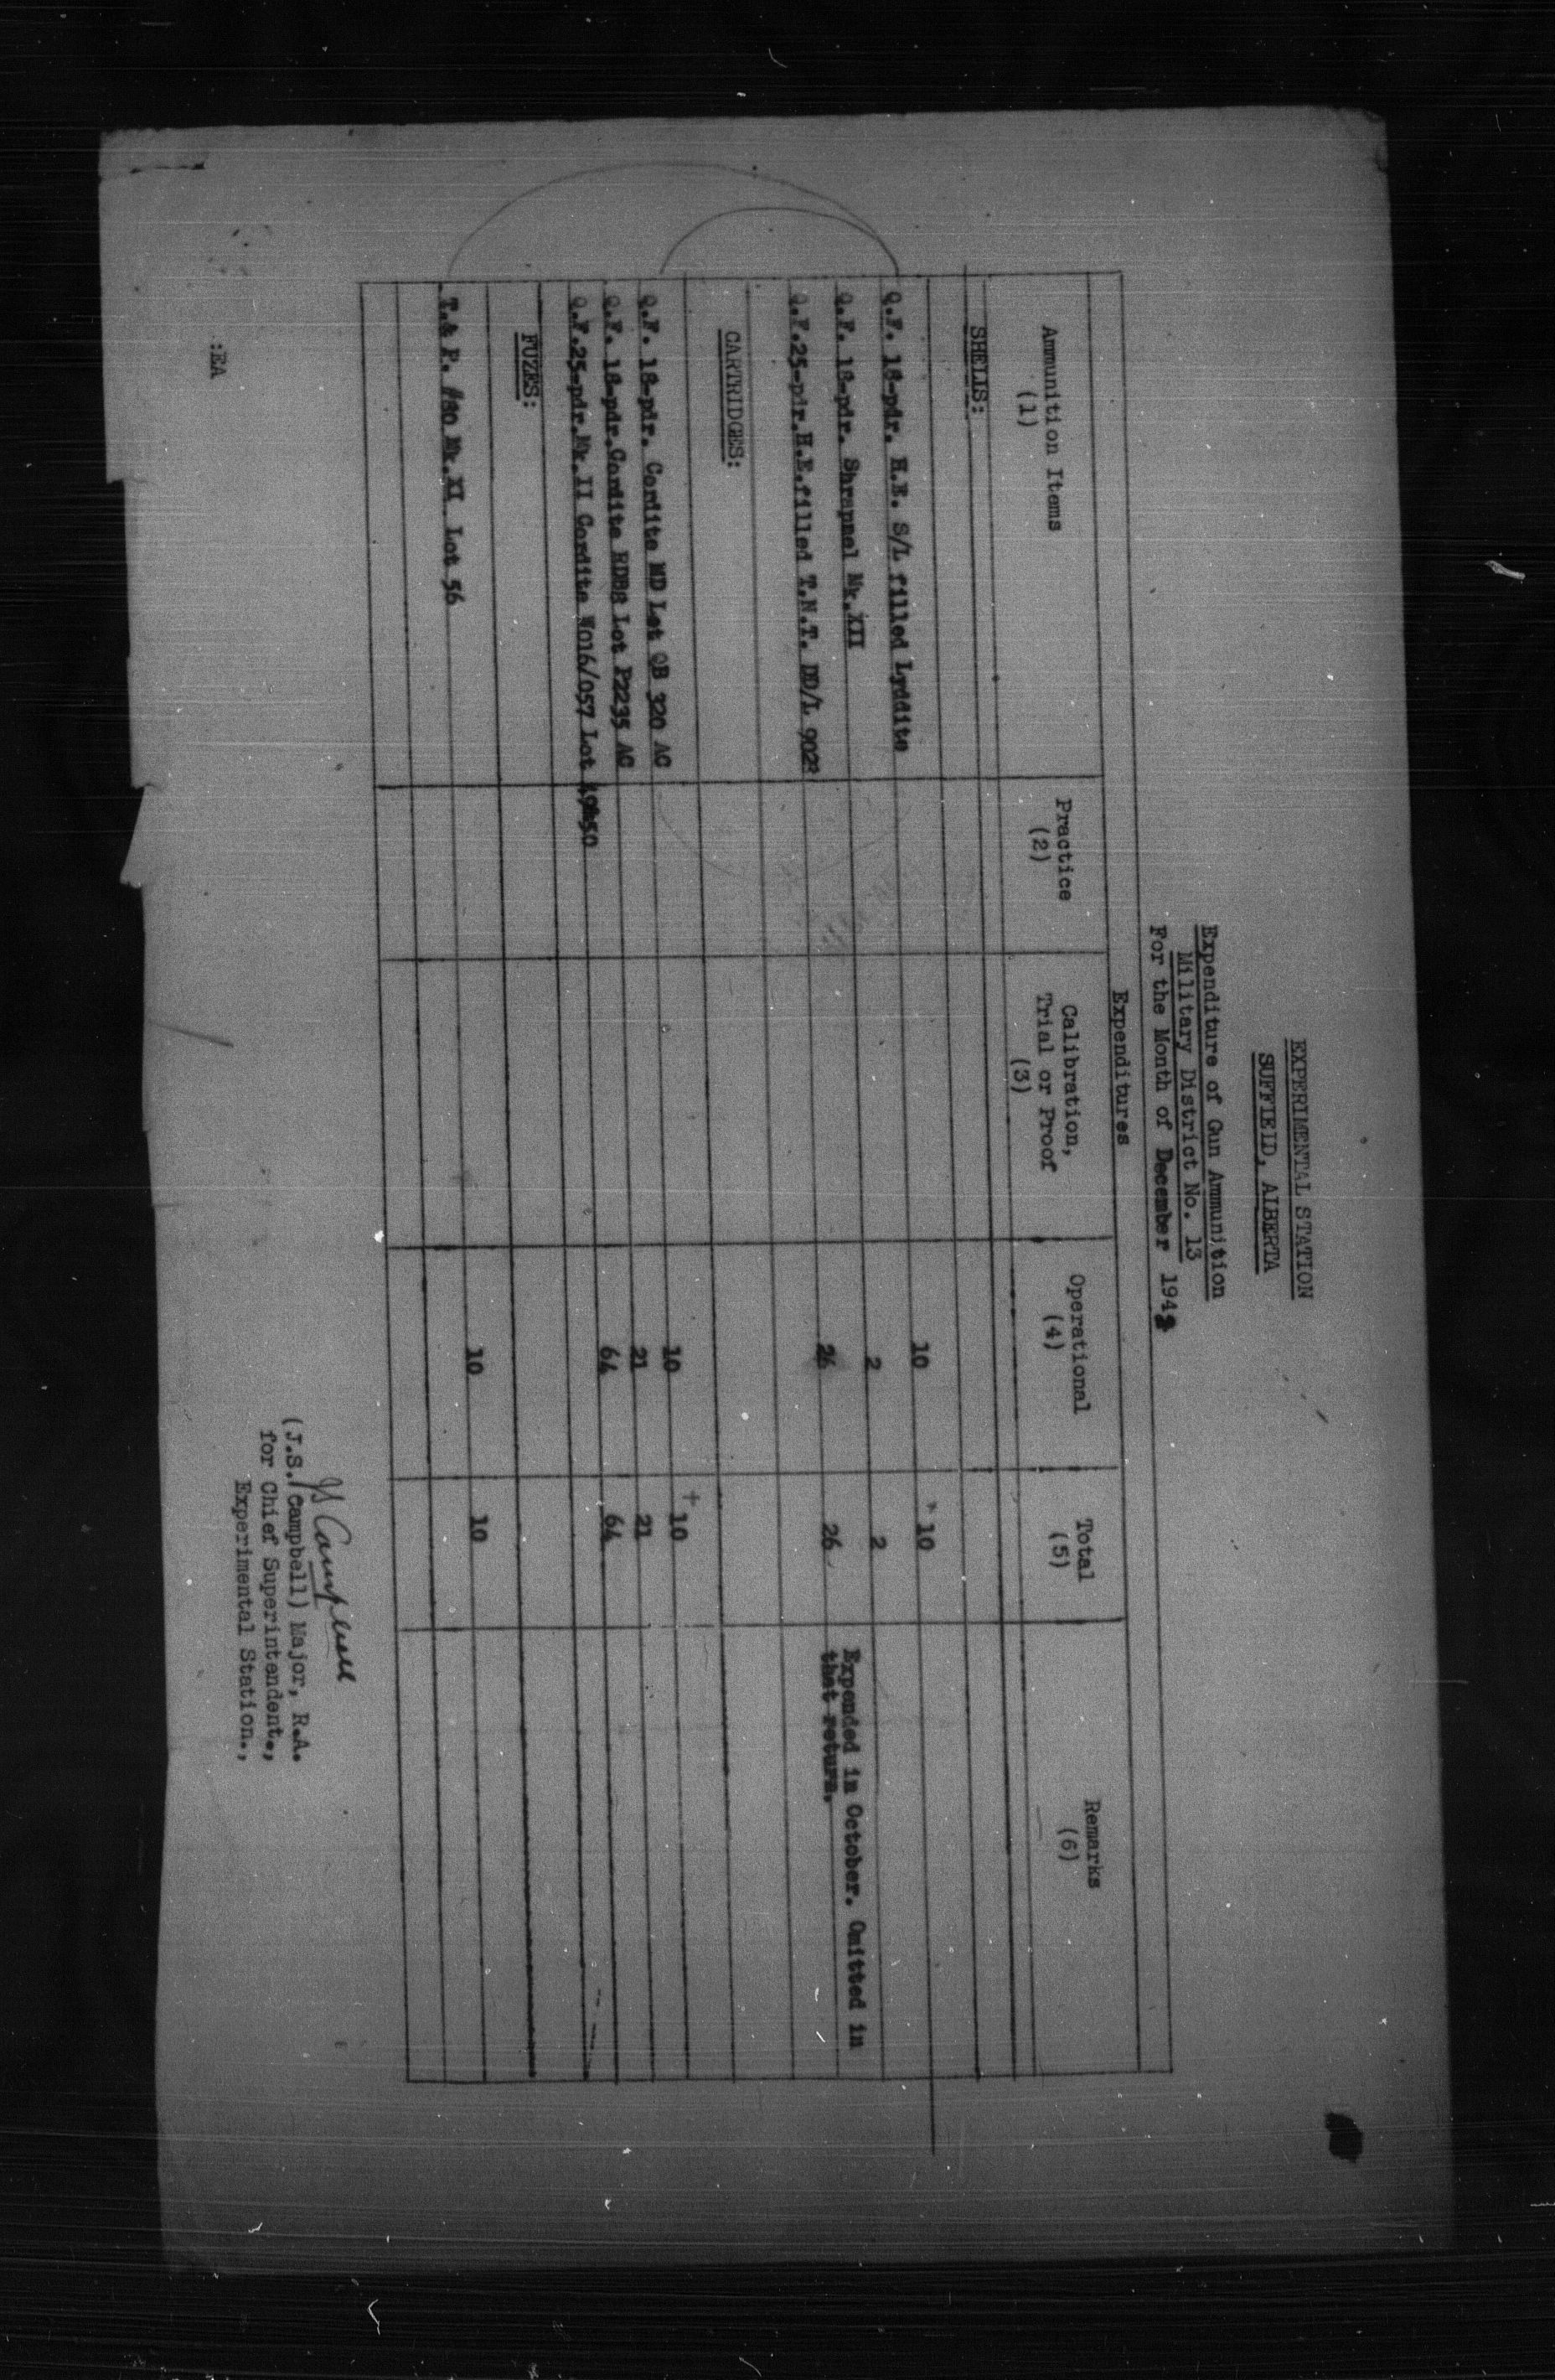 EXPERIMENTAL STATION
SUFFIELD, ALBERTA
Expenditure of Gun Ammunition
Military District No. 13
For the Month of December 194
Expenditures
Ammunition Items (1) Practice (2) Calibration, Trial or Proof (3) Operational (4) Total (5) Remarks (6)
SHELLS:
Q.F. 18-pdr. H.E. S/L filled Lyddite 10 10
Q.F. 18-pdr. Shrapnel Mk.XII 2 2 Expended in October. Omitted in
Q.F.25-pdr.H.E.filled T.N.T. DD/L 26 26 that return.
CARTRIDGES:
Q.F. 18-pdr. Cordite MD Lot QB 320 AC 10 + 10
Q.F. 18-pdr.Cordite RDB8 Lot P2235 AC 21 21
Q.F.25-pdr.Mk.II Cordite W016/057 Lot 64 64
FUZES:
T.& P. #80 Mk.XI Lot 56 10 10
JS Campbell
(J.S. Campbell) Major, R.A.
for Chief Superintendent.,
Experimental Station.,
:EA